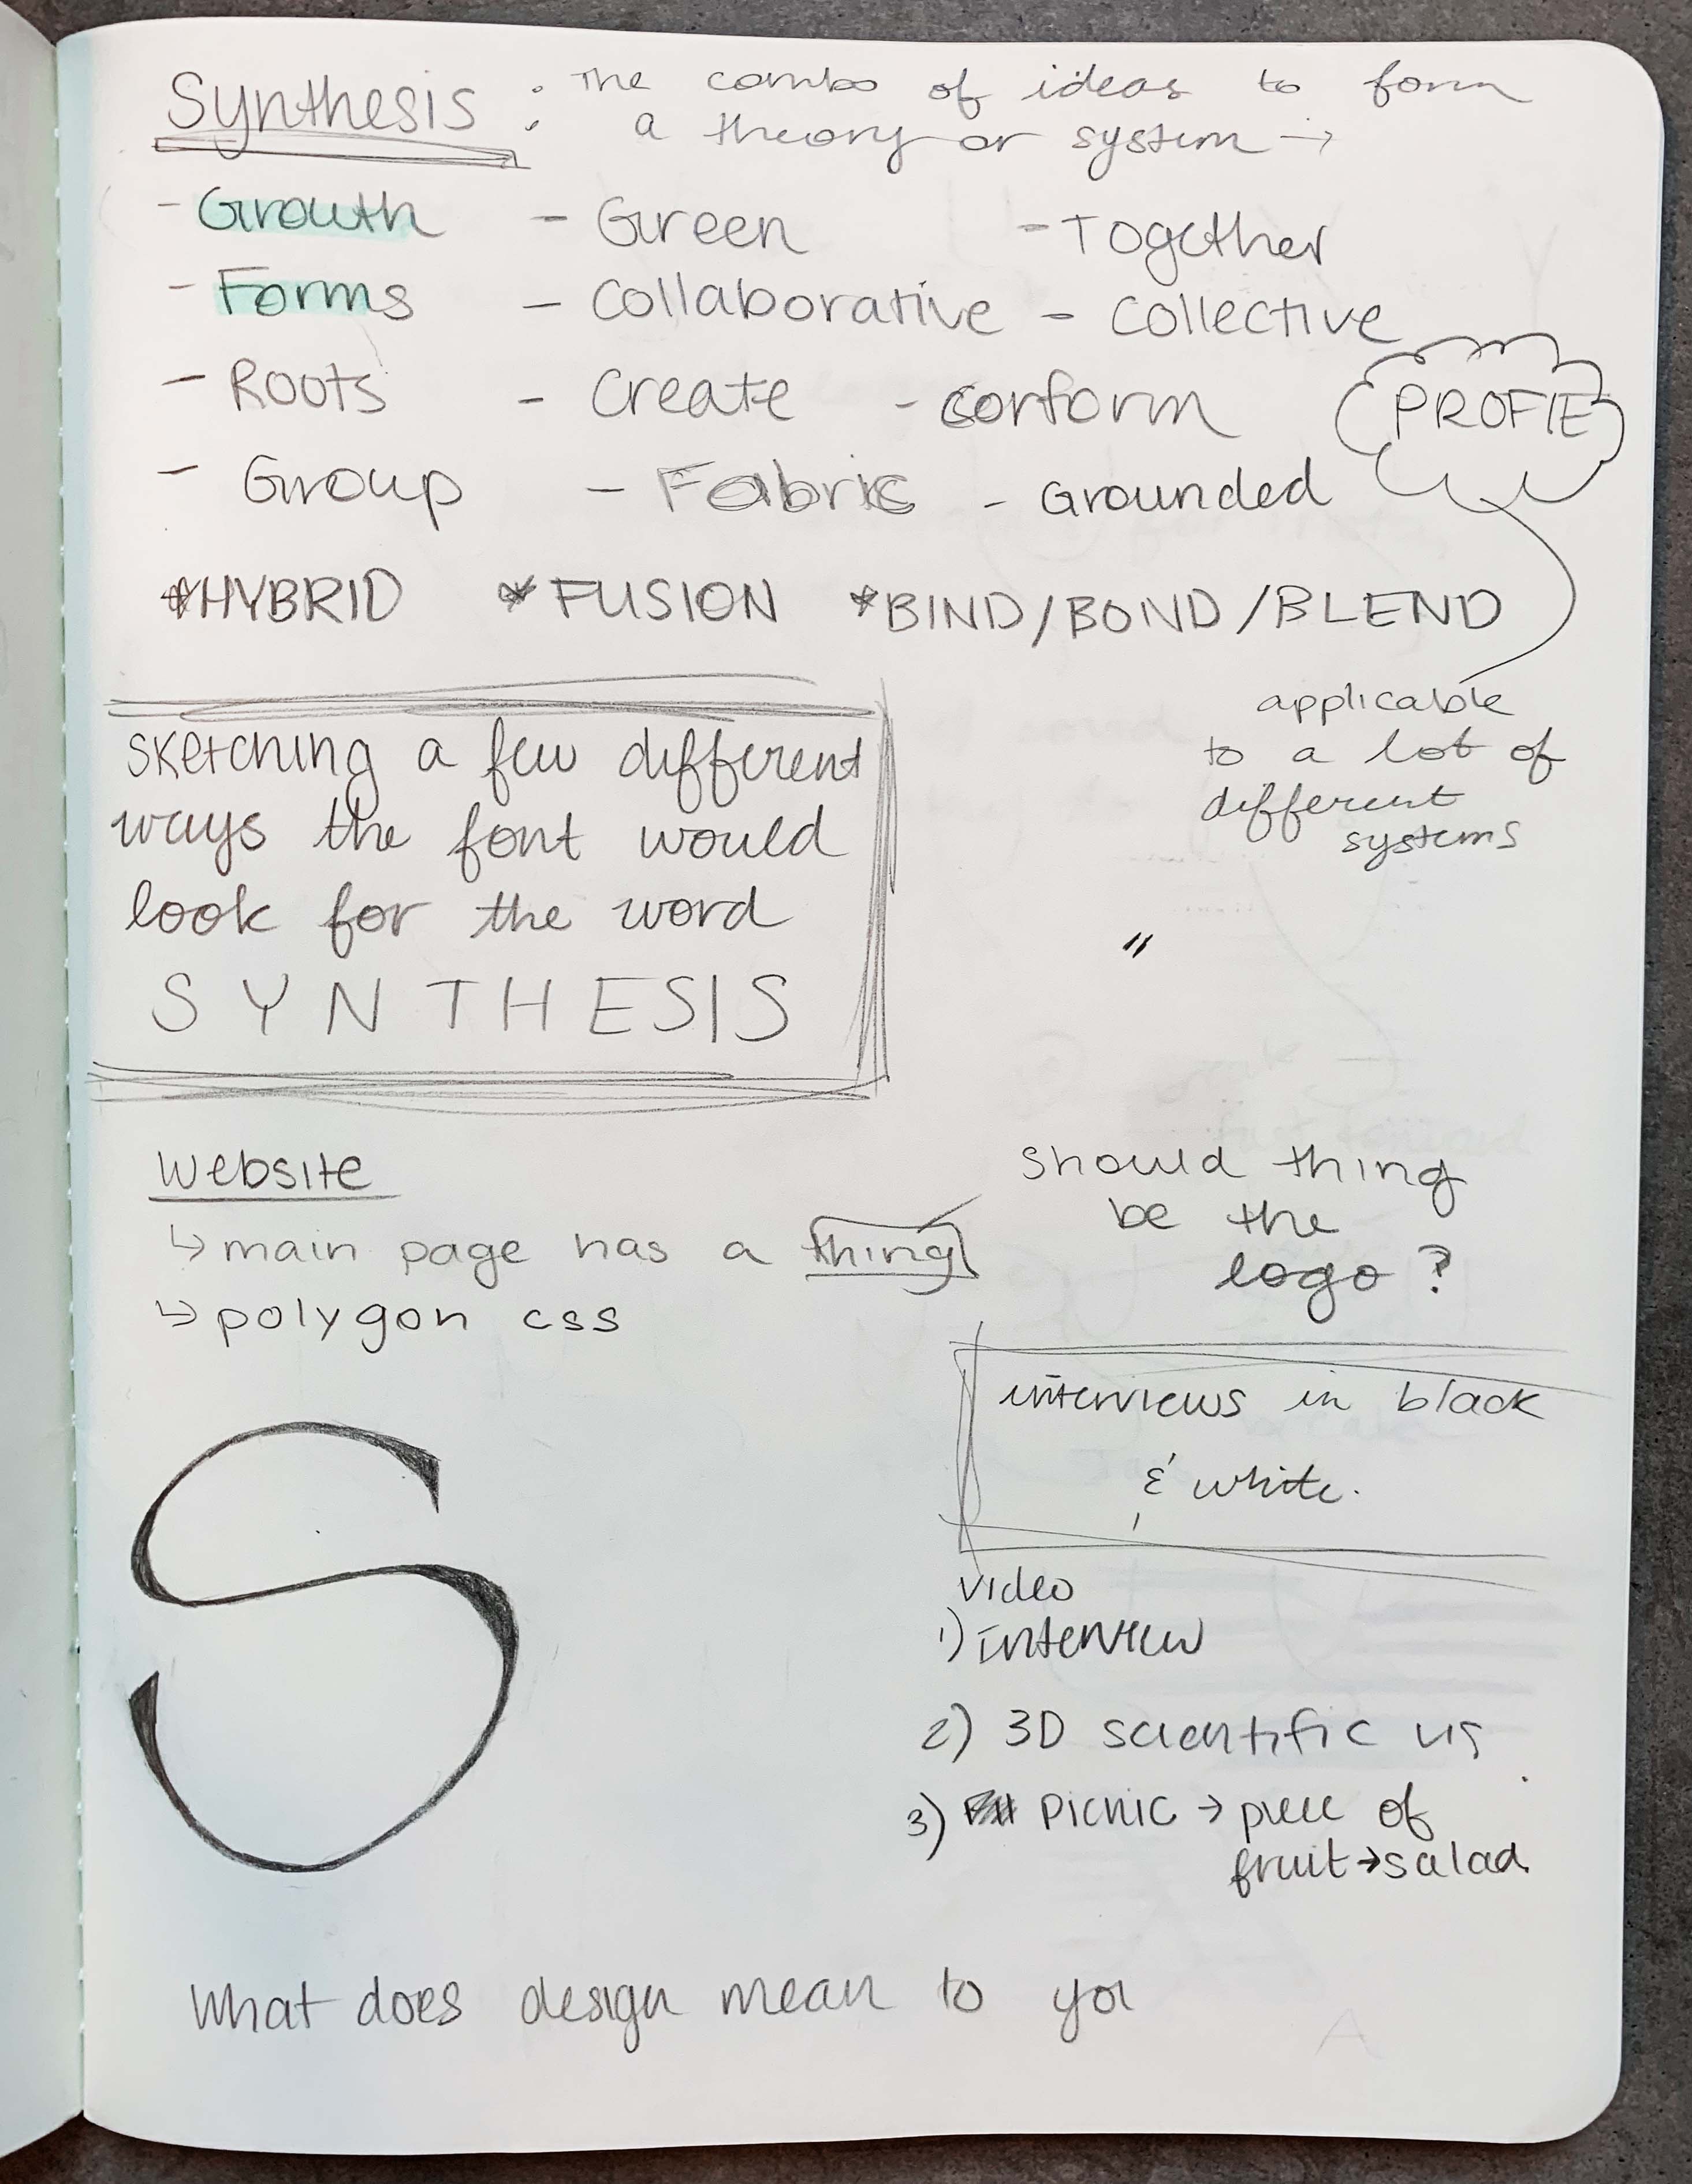 Synthesis : The combo of ideas to form
a theory or system →
- Growth - Green - Together
- Forms - Collaborative - Collective
- Roots - Create - conform
PROFIE
- Group - Fabric - Grounded
*HYBRID *FUSION *BIND/BOND/BLEND
applicable
to a lot of
different
systems
sketching a few different
ways the font would
look for the word
SYNTHESIS
"
Website
↳ main page has a thing
↳ polygon css
should thing
be the
logo?
interviews in black
& white.
video
1) interview
2) 3D scientific
3) Picnic → piece of
fruit → salad
S
What does design mean to you